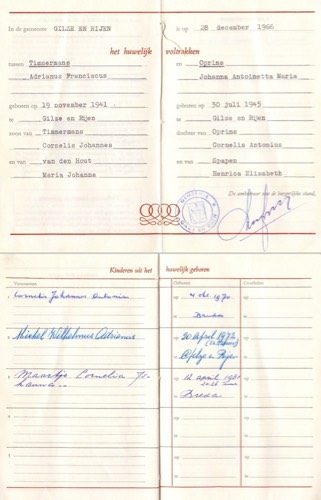 In de gemeente GILZE EN RIJEN is op 28 december 1966
het huwelijk voltrokken
tussen Timmermans en Oprins
Adrianus Franciscus Johanna Antoinetta Maria
geboren op 19 november 1941 geboren op 30 juli 1945
te Gilze en Rijen te Gilze en Rijen
zoon van Timmermans dochter van Oprins
Cornelis Johannes Cornelis Antonius
en van van den Hout en van Spapen
Maria Johanna Henrica Elisabeth
De ambtenaar van de burgerlijke stand,
Kinderen uit het huwelijk geboren
Voornamen Geboren Overleden
Cornelis Johannes Antonia op 4 okt. 1970 op
te Breda te
Michel Wilhelmus Adrianus op 20 April 1972 op
te Gilze en Rijen te
Maartje Cornelia Jo- op 12 april op
hanna te Breda te
op op
te te
op op
te te
op op
te te